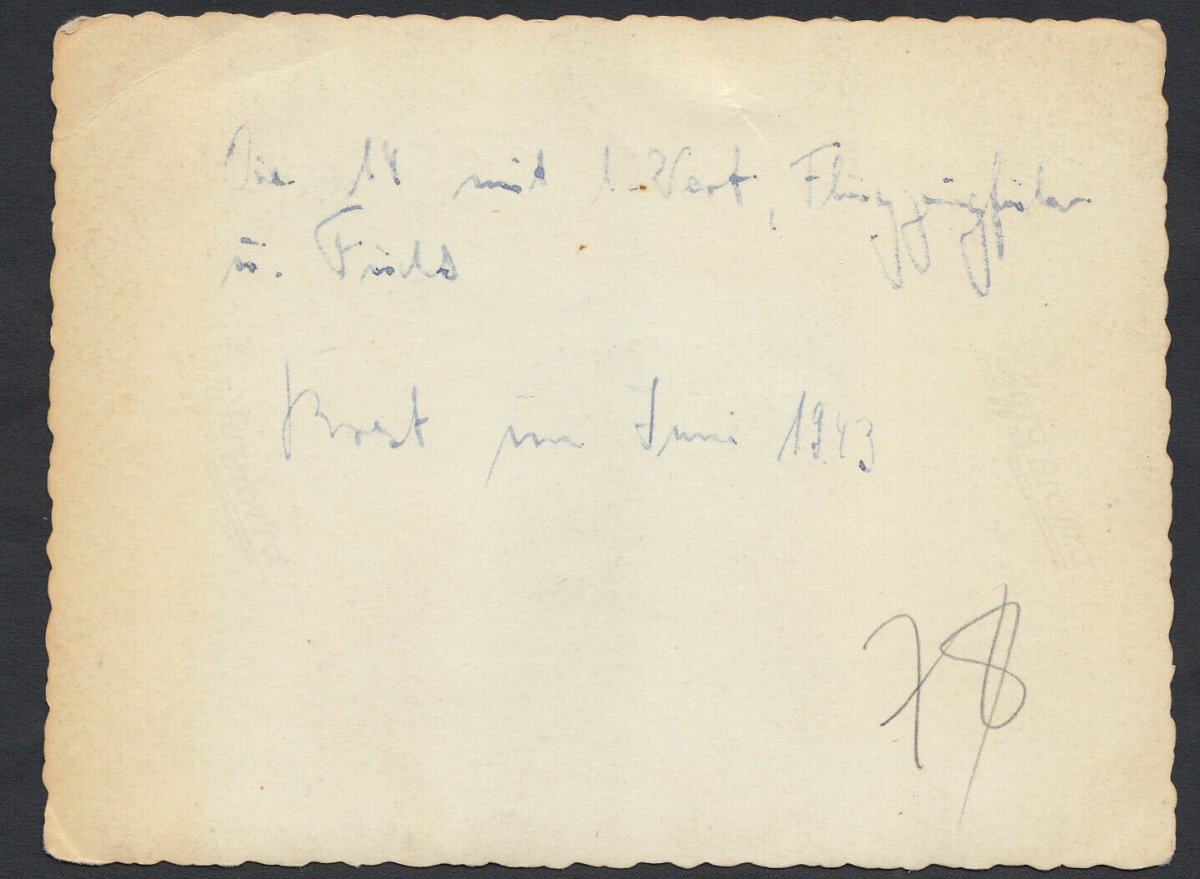 Die 14 mit 1. Wart, Flugzeugführer
u. Funk
Brest im Juni 1943
78